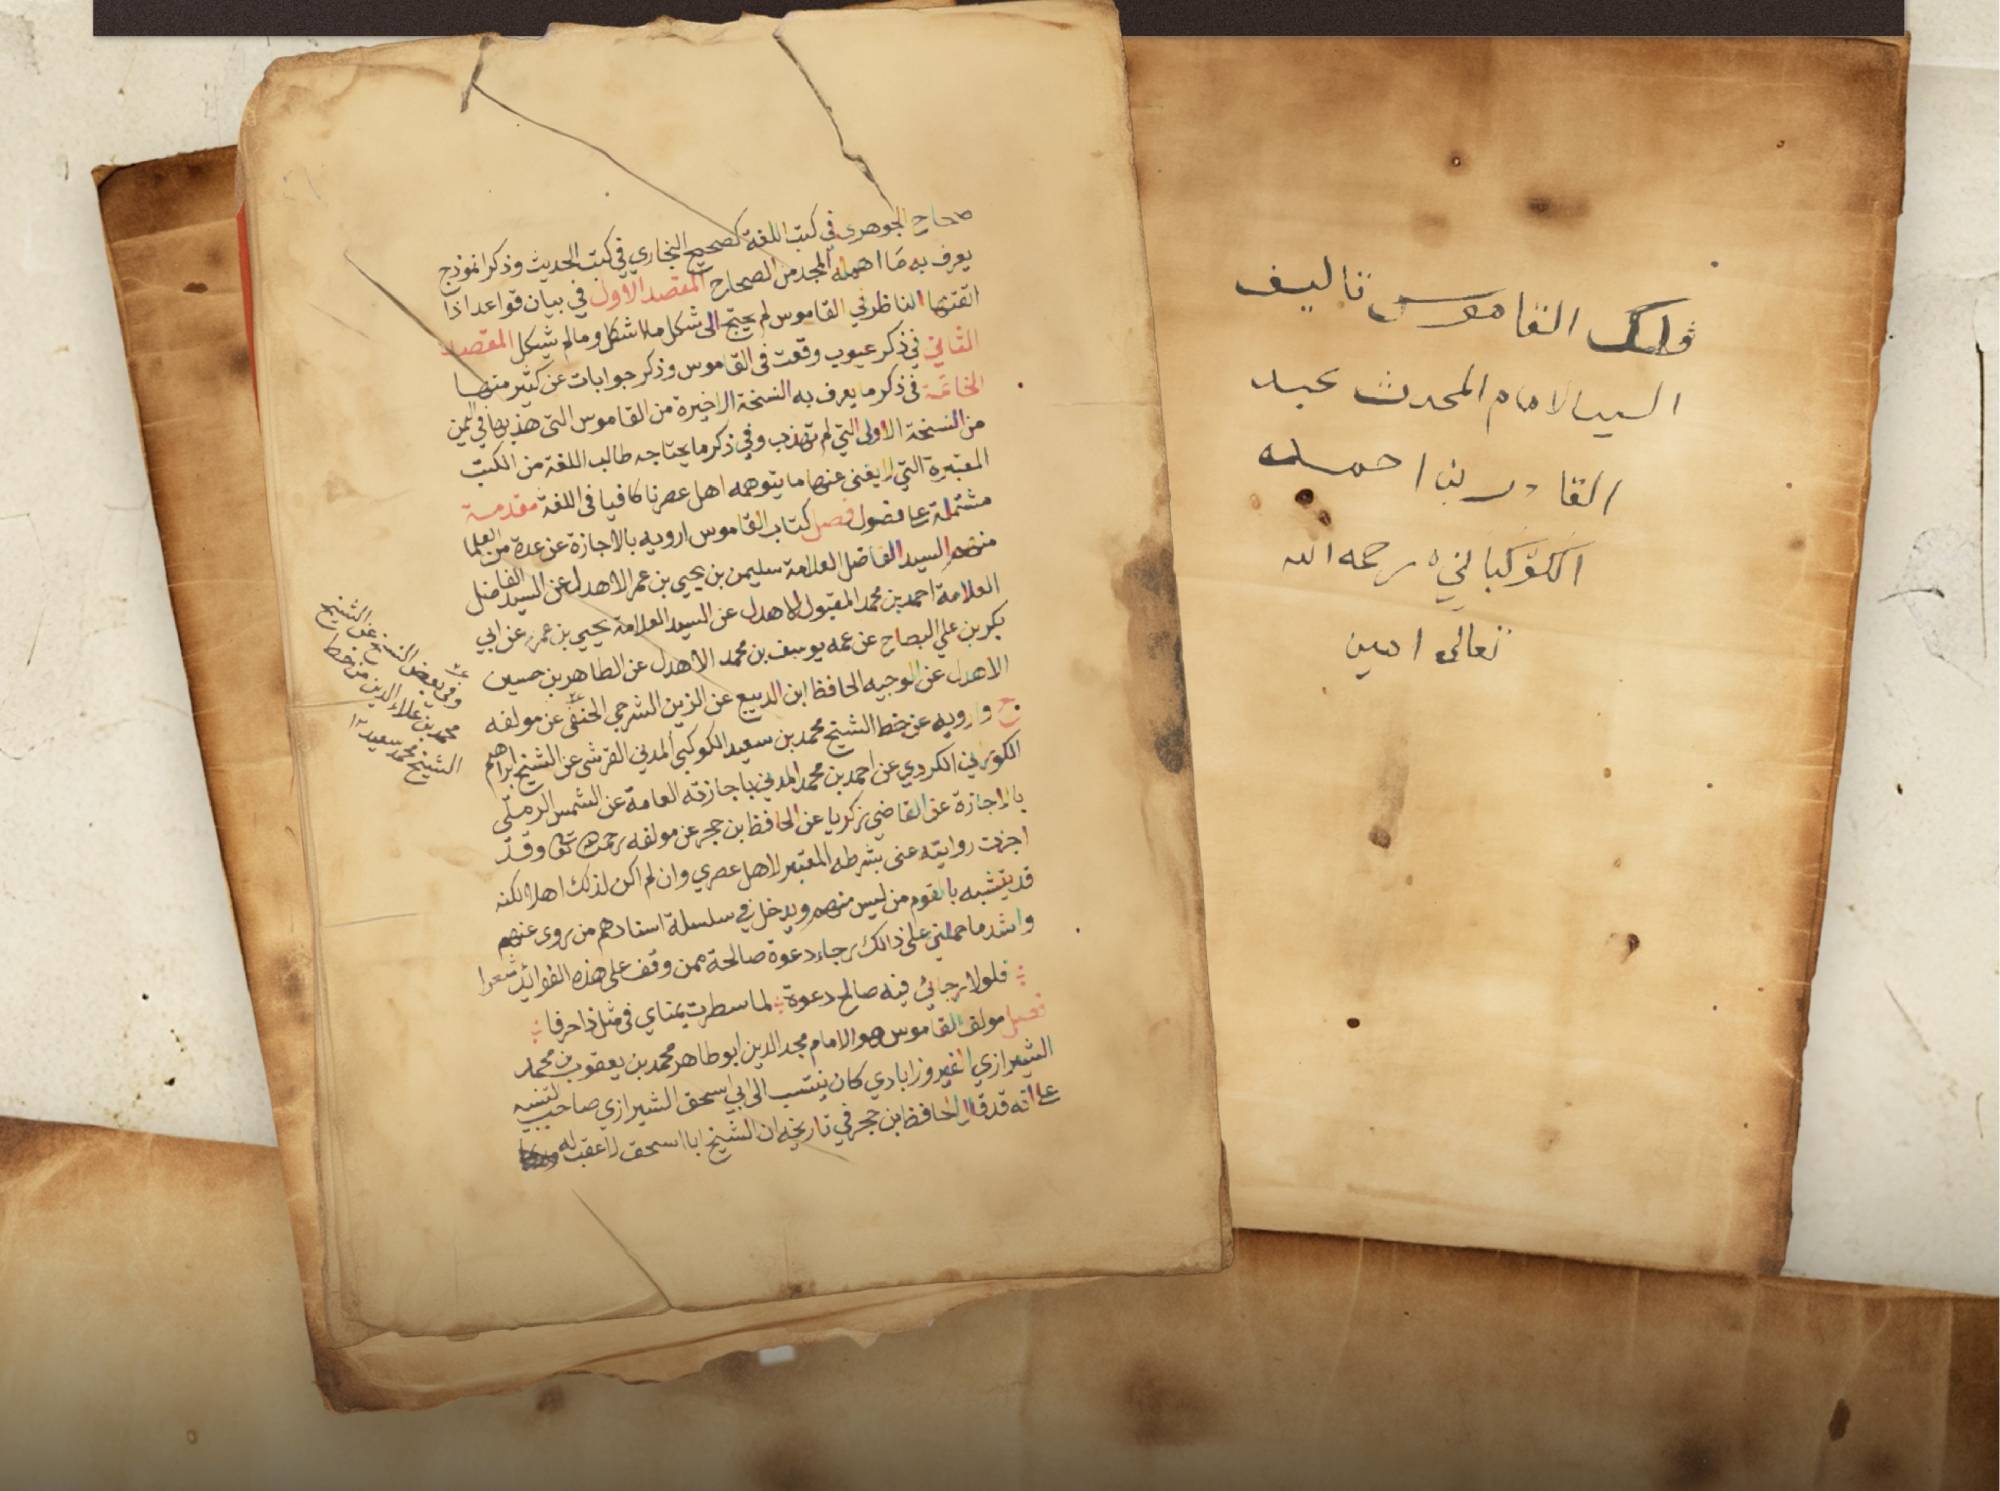 فلك القاموس تاليف
السيد الامام المحدث عبد
القادر بن احمد
الكوكباني رحمه الله
تعالى امين
صحاح الجوهري في كتب اللغة كصحيح البخاري في كتب الحديث وذكر انموذج
يعرف به ما اهمله المجد من الصحاح المقصد الاول في بيان قواعد اذا
اتقنها الناظر في القاموس لم يحتج الى شكل ما اشكل وما لم يشكل المقصد
الثاني في ذكر عيوب وقعت في القاموس وذكر جوابات عن كثير منها
الخاتمة في ذكر ما يعرف به النسخة الاخيرة من القاموس التي هذبها في اليمن
من النسخة الاولى التي لم تهذب وفي ذكر ما يحتاجه طالب اللغة من الكتب
المعتبرة التي لا يغني عنها ما يتوهمه اهل عصرنا كافيا في اللغة مقدمة
مشتملة على فصول فصل كتاب القاموس ارويه بالاجازة عن عدة من العلما
منهم السيد الفاضل العلامة سليمن بن يحيى بن عمر الاهدل عن السيد الفاضل
العلامة احمد بن محمد المقبول الاهدل عن السيد العلامة يحيى بن عمر عن ابي
بكر بن علي البطاح عن عمه يوسف بن محمد الاهدل عن الطاهر بن حسين
الاهدل عن الوجيه الحافظ ابن الديبع عن الزين الشرجي الحنفي عن مولفه
ح وارويه عن خط الشيخ محمد بن سعيد الكوكبي المدني القرشي عن الشيخ ابراهيم
الكوراني الكردي عن احمد بن محمد المدني باجازته العامة عن الشمس الرملي
بالاجازة عن القاضي زكريا عن الحافظ ابن حجر عن مولفه رحمهم الله تعالى وقد
اجزت روايته عني بشرطه المعتبر لاهل عصري وان لم اكن لذلك اهلا لكنه
قد يتشبه بالقوم من ليس منهم ويدخل في سلسلة اسنادهم من روى عنهم
واشد ما حملني على ذالك رجاء دعوة صالحة ممن وقف على هذه الفوائد شعرا
فلولا رجائي فيه صالح دعوة لما سطرت يمناي في مثل ذا حرفا
فصل مولف القاموس هو الامام مجد الدين ابو طاهر محمد بن يعقوب بن محمد
الشيرازي الفيروزابادي كان ينتسب الى ابي اسحق الشيرازي صاحب التنبيه
على انه قد قال الحافظ ابن حجر في تاريخه ان الشيخ ابا اسحق لا عقب له
وفي بعض النسخ عن الشيخ
محمد بن علاء الدين من خط
الشيخ محمد سعيد ١٢